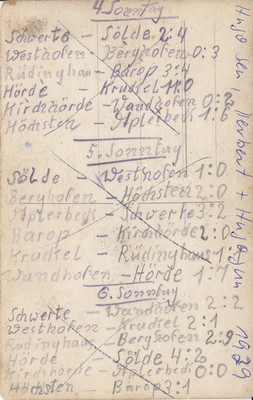 4. Sonntag
Schwerte - Sölde 2:4
Westhofen - Berghofen 0:3
Rüdinghau - Barop 3:4
Hörde - Kruckel 11:0
Kirchhörde - Wandhofen 0:2
Höchsten - Aplerbeck 1:6
5. Sonntag
Sölde - Westhofen 1:0
Berghofen - Höchsten 2:0
Aplerbeck - Schwerte 3:2
Barop - Kirchhörde 2:0
Kruckel - Rüdinghaus 1:
Wandhofen - Hörde 1:7
6. Sonntag
Schwerte - Wandhofen 2:2
Westhofen - Kruckel 2:1
Rüdinghaus - Berghofen 2:9
Hörde - Sölde 4:2
Kirchhörde - Aplerbeck 0:0
Höchsten - Barop 3:1
Hugo sen Herbert + Hugo jun 1929